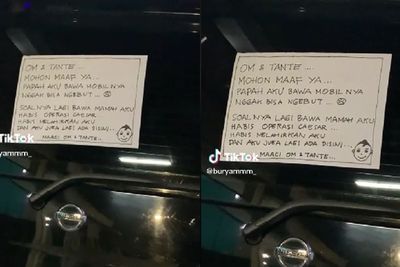 OM & TANTE....
MOHON MAAF YA...
PAPAH AKU BAWA MOBILNYA
NGGAK BISA NGEBUT...
SOALNYA LAGI BAWA MAMAH AKU
HABIS OPERASI CAESAR...
HABIS MELAHIRKAN AKU
DAN AKU JUGA LAGI ADA DISINI...
MAACI OM & TANTE..
TikTok
yammm_
NISSAN
OM & TANTE....
MOHON MAAF YA...
PAPAH AKU BAWA MOBILNYA
NGGAK BISA NGEBUT...
SOALNYA LAGI BAWA MAMAH AKU
HABIS OPERASI CAESAR...
HABIS MELAHIRKAN AKU
DAN AKU JUGA LAGI ADA DISINI...
MAACI OM & TANTE...
TikTok
@buryammm_
NISSAN